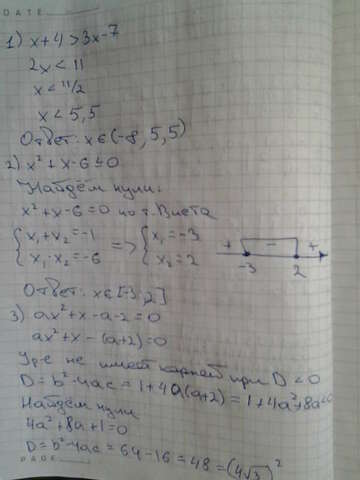 DATE
1) x+4>3x-7
2x<11
x<11/2
x<5,5
Ответ: x∈(-∞, 5,5)
2) x²+x-6≤0
Найдём нули:
x²+x-6=0 по т. Виета
{x₁+x₂=-1 => {x₁=-3
{x₁·x₂=-6 {x₂=2
+ - +
-3 2
Ответ: x∈[-3,2]
3) ax²+x-a-2=0
ax²+x-(a+2)=0
Ур-е не имеет корней при D<0
D=b²-4ac=1+4a(a+2)=1+4a²+8a<0
Найдём нули
4a²+8a+1=0
D=b²-4ac=64-16=48=(4√3)²
PAGE